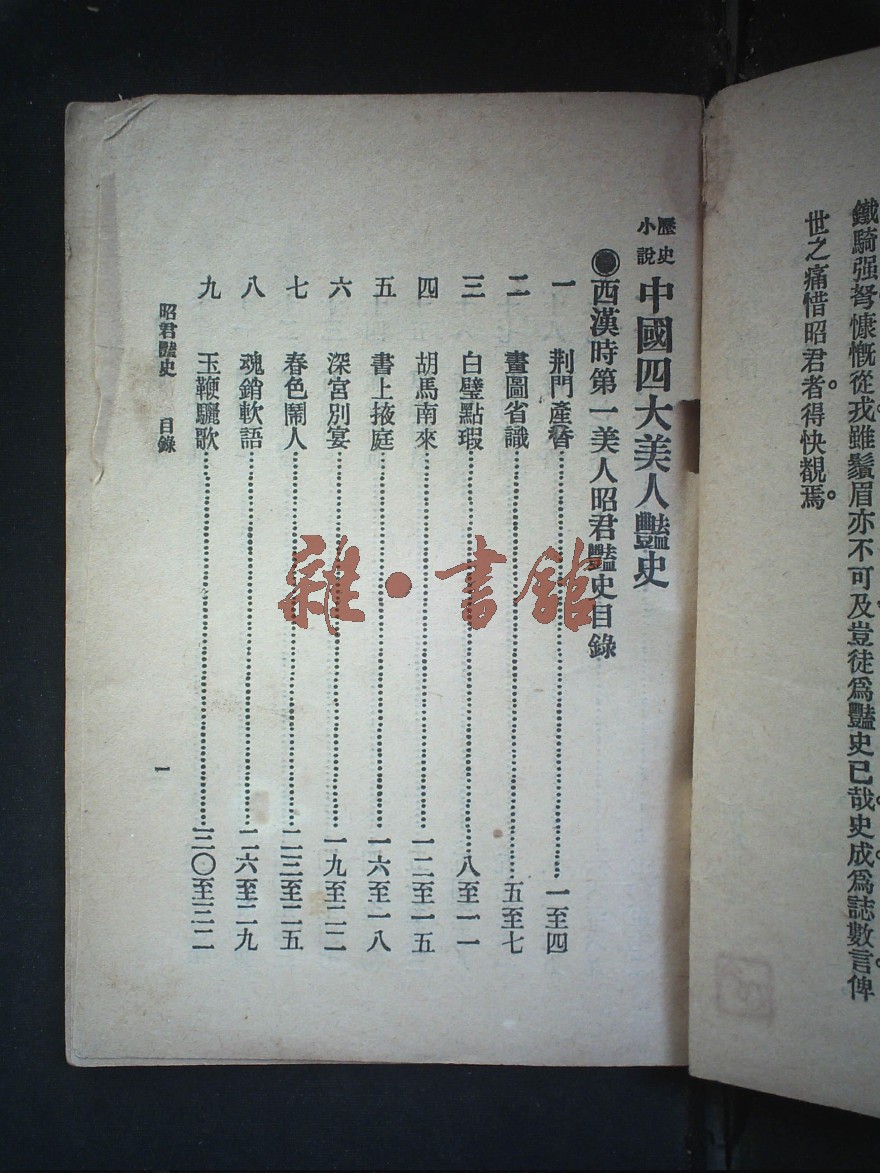 鐵騎强弩慷慨從戎雖鬚眉亦不可及豈徒爲豔史已哉史成爲誌數言俾
世之痛惜昭君者。得快覩焉。
歷史小說 中國四大美人豔史
●西漢時第一美人昭君豔史目錄
一 荆門產香……一至四
二 畫圖省識……五至七
三 白璧點瑕……八至一一
四 胡馬南來……一二至一五
五 書上掖庭……一六至一八
六 深宮別宴……一九至二二
七 春色鬧人……二三至二五
八 魂銷軟語……二六至二九
九 玉鞭驪歌……三〇至三二
昭君豔史 目錄
一
雜·書館